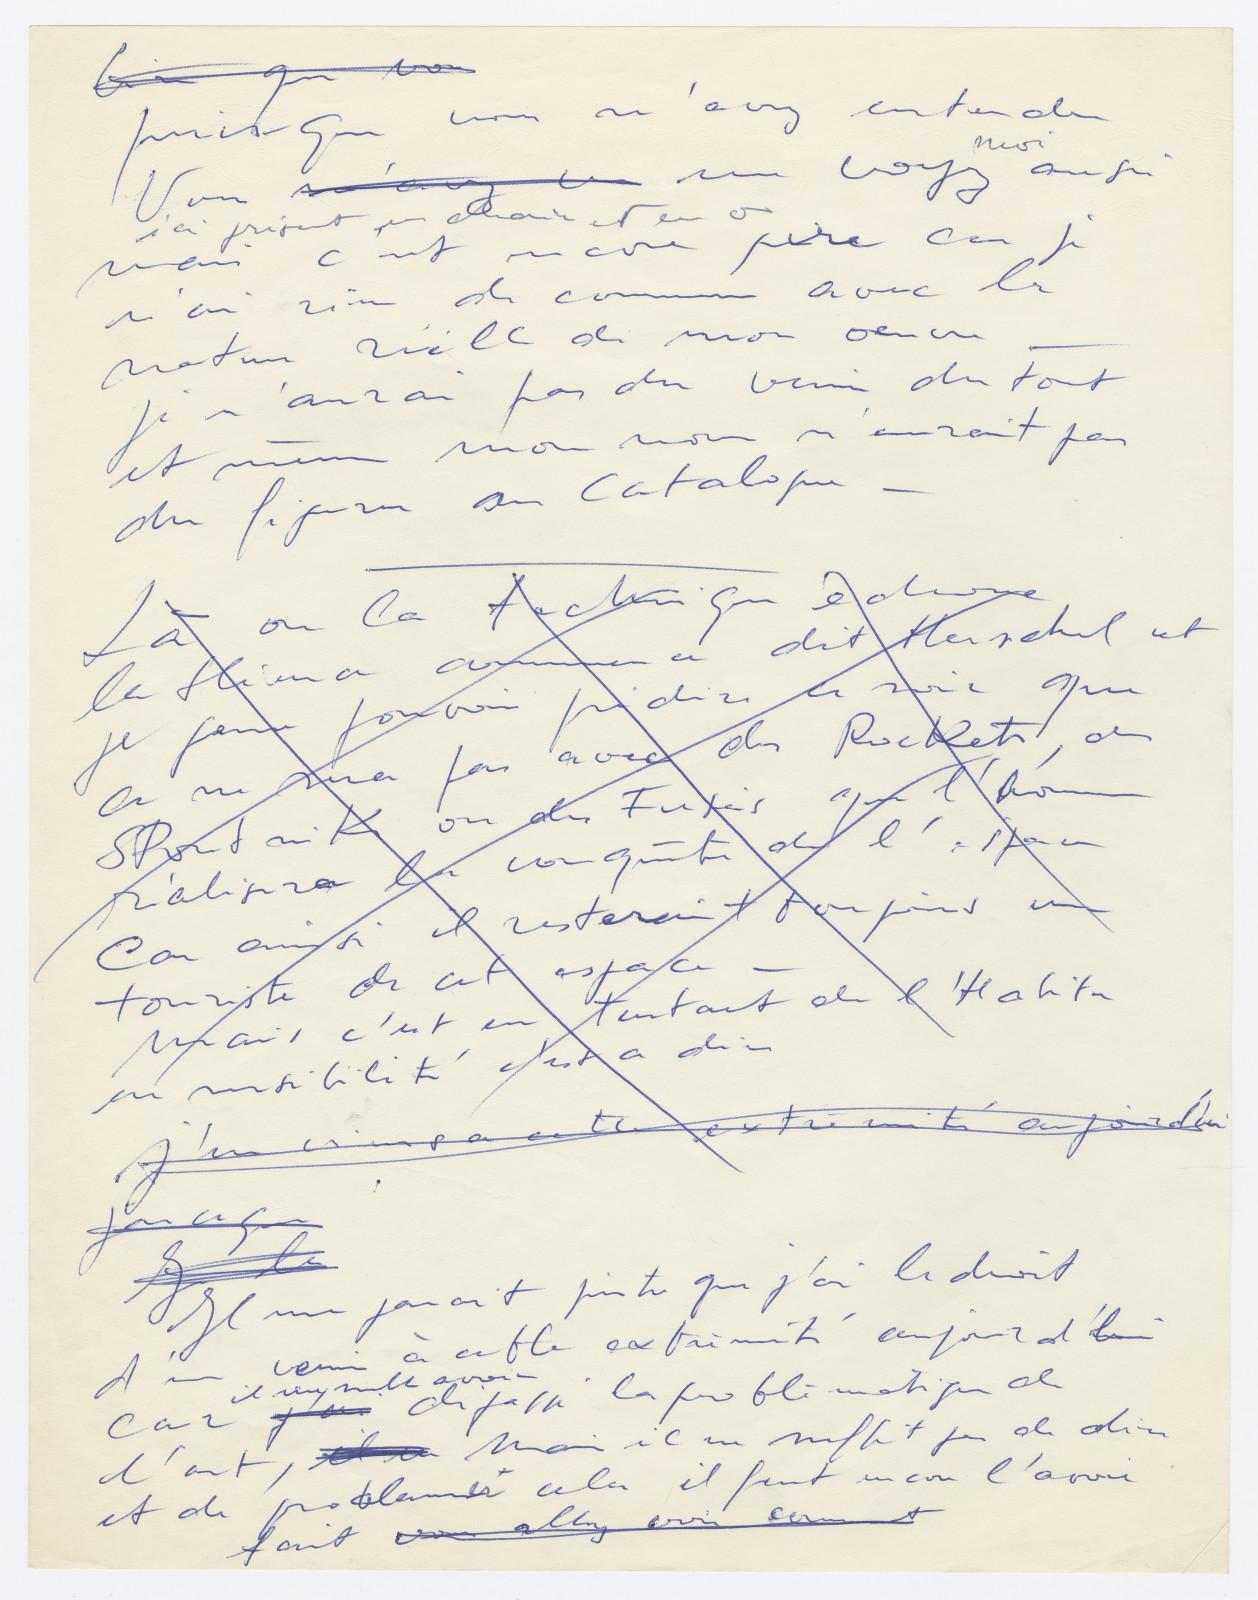 bien que vous
puisque vous n'avez entendu
moi
Vous n'avez vu me voyez aussi
ici présent en chair et en o
mais c'est encore pire car je
n'ai rien de commun avec la
nature réelle de mon oeuvre —
je n'aurai pas du venir du tout
et même mon nom n'aurait pas
du figurer au Catalogue —
Là ou la technique échoue
la science commence a dit Herschel et
je pense pouvoir prédire ce soir que
ce ne sera pas avec des Rockets, des
SPoutniks ou des Fusées que l'homme
réalisera la conquête de l'espace
Car ainsi il resterait toujours un
touriste de cet espace —
Mais c'est en tentant de l'Habiter
en sensibilité c'est a dire
j'en viens a cette extrémité aujourd'hui
parceque
Je le
Il me parait juste que j'ai le droit
d'en venir à cette extrémité aujourd'hui
il me semble avoir
car j'ai dépassé la problématique de
l'art, Mais il ne suffit pas de dire
et de proclamer cela il faut encore l'avoir
fait vous allez voir comment